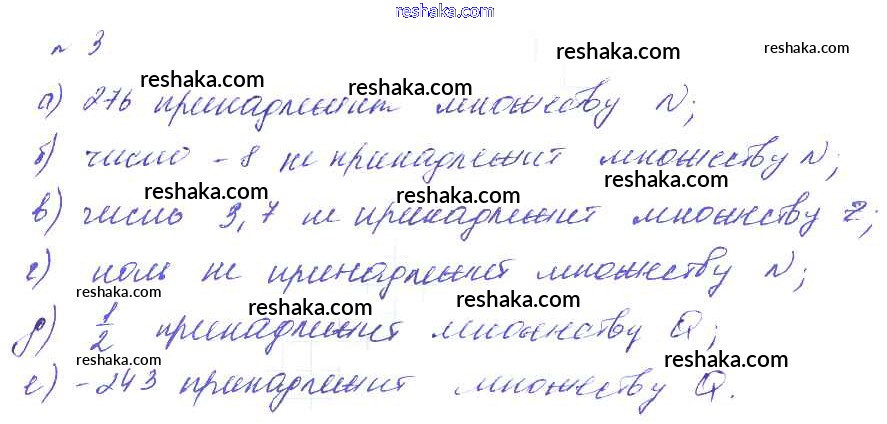 reshaka.com
n 3
reshaka.com reshaka.com
reshaka.com reshaka.com
а) 276 принадлежит множеству N;
reshaka.com
б) число -8 не принадлежит множеству N;
reshaka.com reshaka.com reshaka.com
в) число 3,7 не принадлежит множеству Z;
г) ноль не принадлежит множеству N;
reshaka.com reshaka.com reshaka.com
д) 1/2 принадлежит множеству Q;
reshaka.com reshaka.com reshaka.com
е) -243 принадлежит множеству Q.